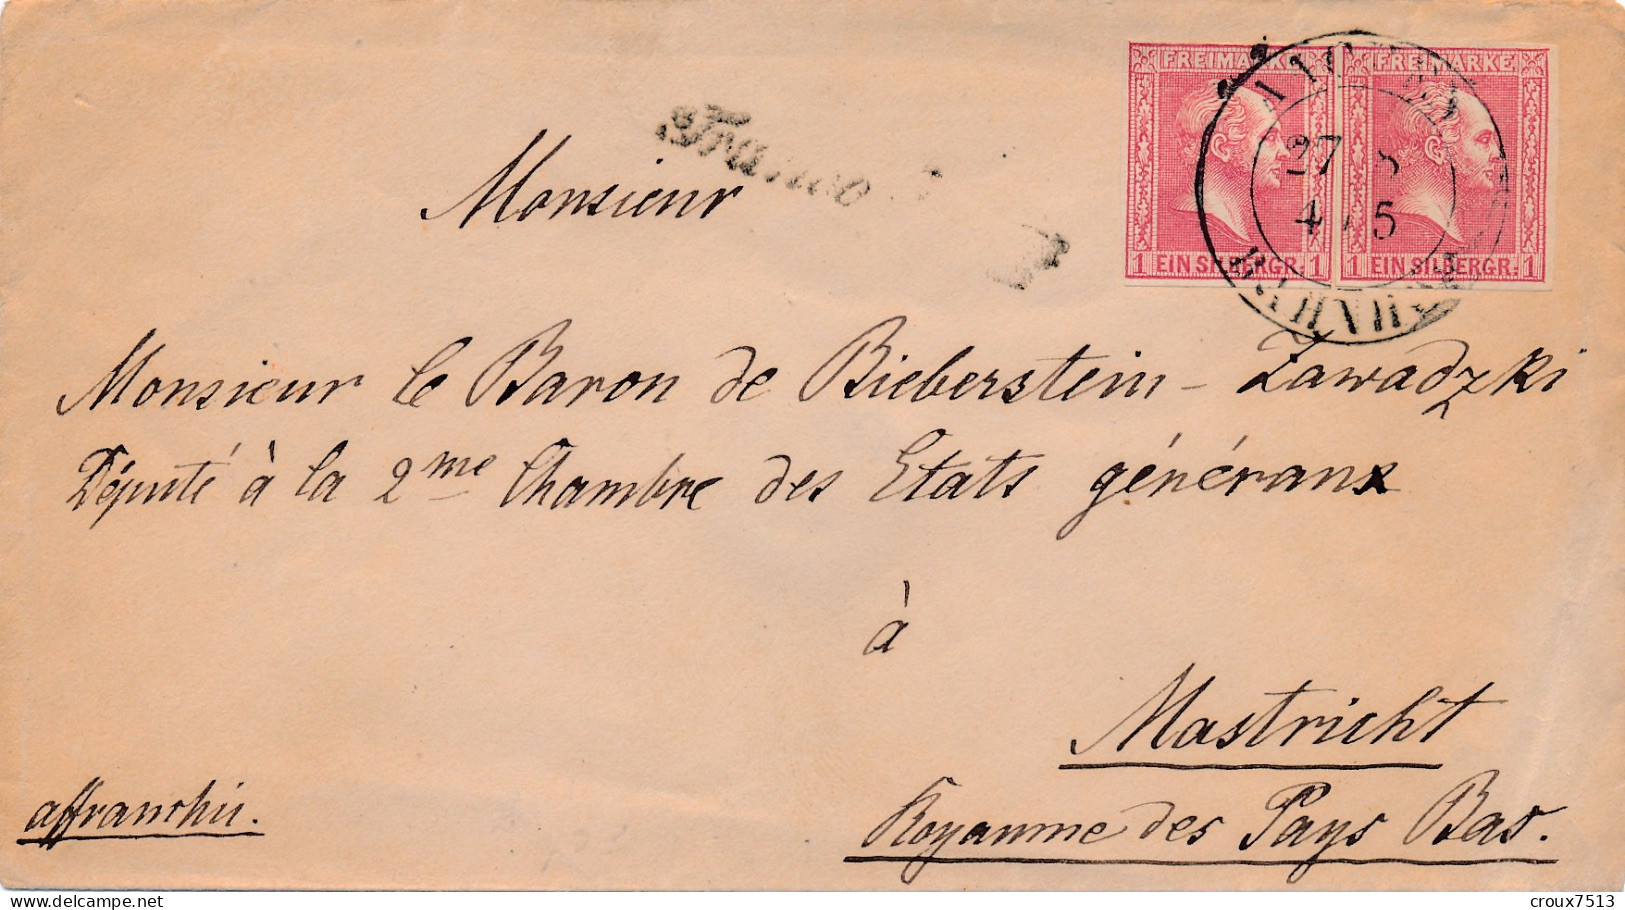 FREIMARKE FREIMARKE
1 EIN SILBERGR. 1 1 EIN SILBERGR. 1
27 5
4 5
Franco
Monsieur
Monsieur le Baron de Bieberstein - Zawadzki
Député à la 2me Chambre des Etats généraux
à
Mastricht
Royaume des Pays Bas.
affranchie.
croux7513